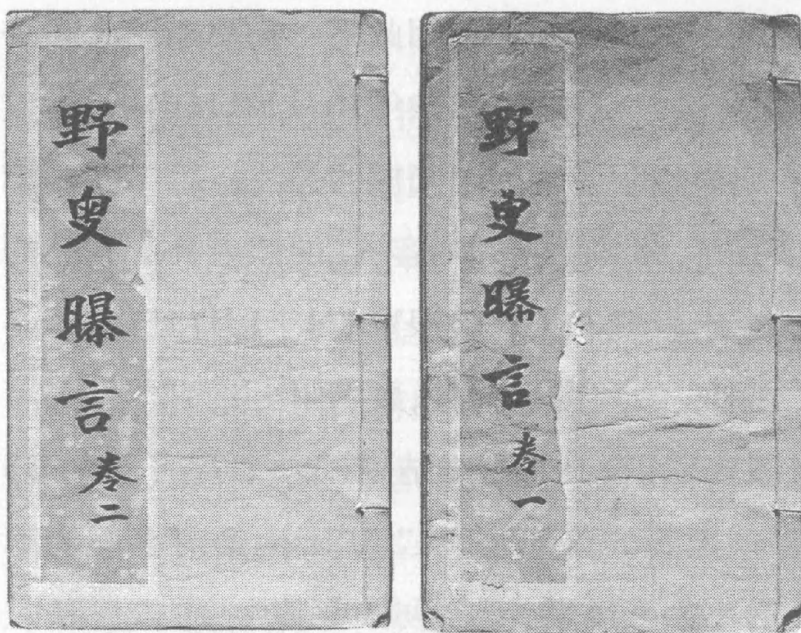 野叟曝言卷一
野叟曝言卷二